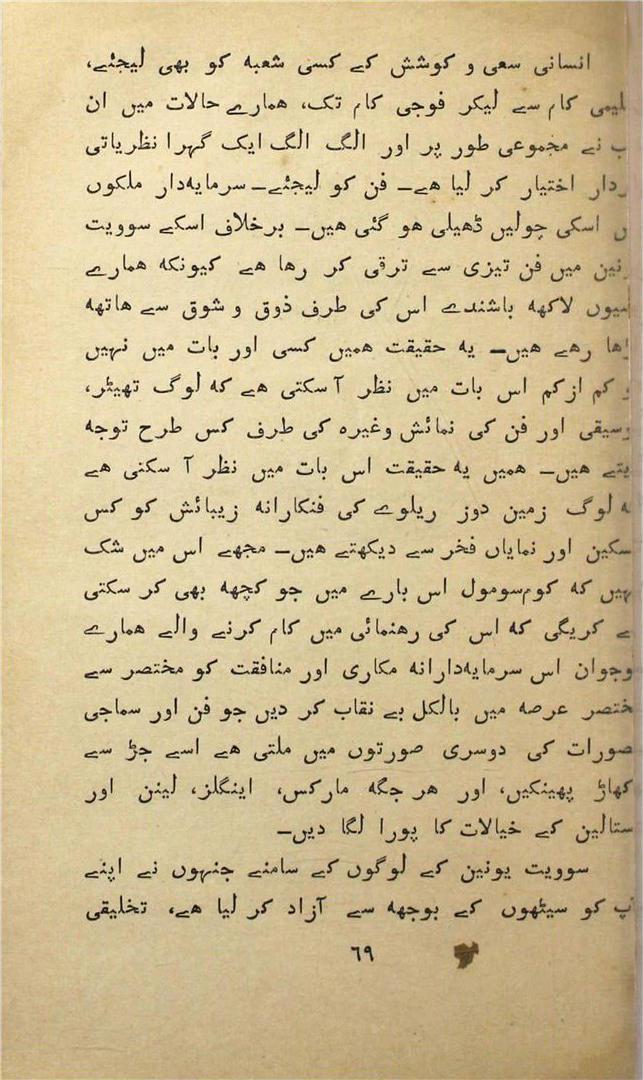 انسانی سعی و کوشش کے کسی شعبہ کو بھی لیجئے،
کام سے لیکر فوجی کام تک، ھمارے حالات میں ان
نے مجموعی طور پر اور الگ الگ ایک گہرا نظریاتی
اختیار کر لیا ھے۔ فن کو لیجئے۔ سرمایہدار ملکوں
اسکی چولیں ڈھیلی ھو گئی ھیں۔ برخلاف اسکے سوویت
میں فن تیزی سے ترقی کر رھا ھے کیونکہ ھمارے
لاکھہ باشندے اس کی طرف ذوق و شوق سے ھاتھہ
رھے ھیں۔ یہ حقیقت ھمیں کسی اور بات میں نہیں
کم ازکم اس بات میں نظر آ سکتی ھے کہ لوگ تھیٹر،
اور فن کی نمائش وغیرہ کی طرف کس طرح توجہ
ھیں۔ ھمیں یہ حقیقت اس بات میں نظر آ سکنی ھے
لوگ زمین دوز ریلوے کی فنکارانہ زیبائش کو کس
اور نمایاں فخر سے دیکھتے ھیں۔ مجھے اس میں شک
کہ کومسومول اس بارے میں جو کچھہ بھی کر سکتی
کریگی کہ اس کی رھنمائی میں کام کرنے والے ھمارے
اس سرمایہدارانہ مکاری اور منافقت کو مختصر سے
عرصہ میں بالکل بے نقاب کر دیں جو فن اور سماجی
کی دوسری صورتوں میں ملتی ھے اسے جڑ سے
پھینکیں، اور ھر جگہ مارکس، اینگلز، لینن اور
ستالین کے خیالات کا پورا لگا دیں۔
سوویت یونین کے لوگوں کے سامنے جنہوں نے اپنے
کو سیٹھوں کے بوجھہ سے آزاد کر لیا ھے، تخلیقی
٦٩